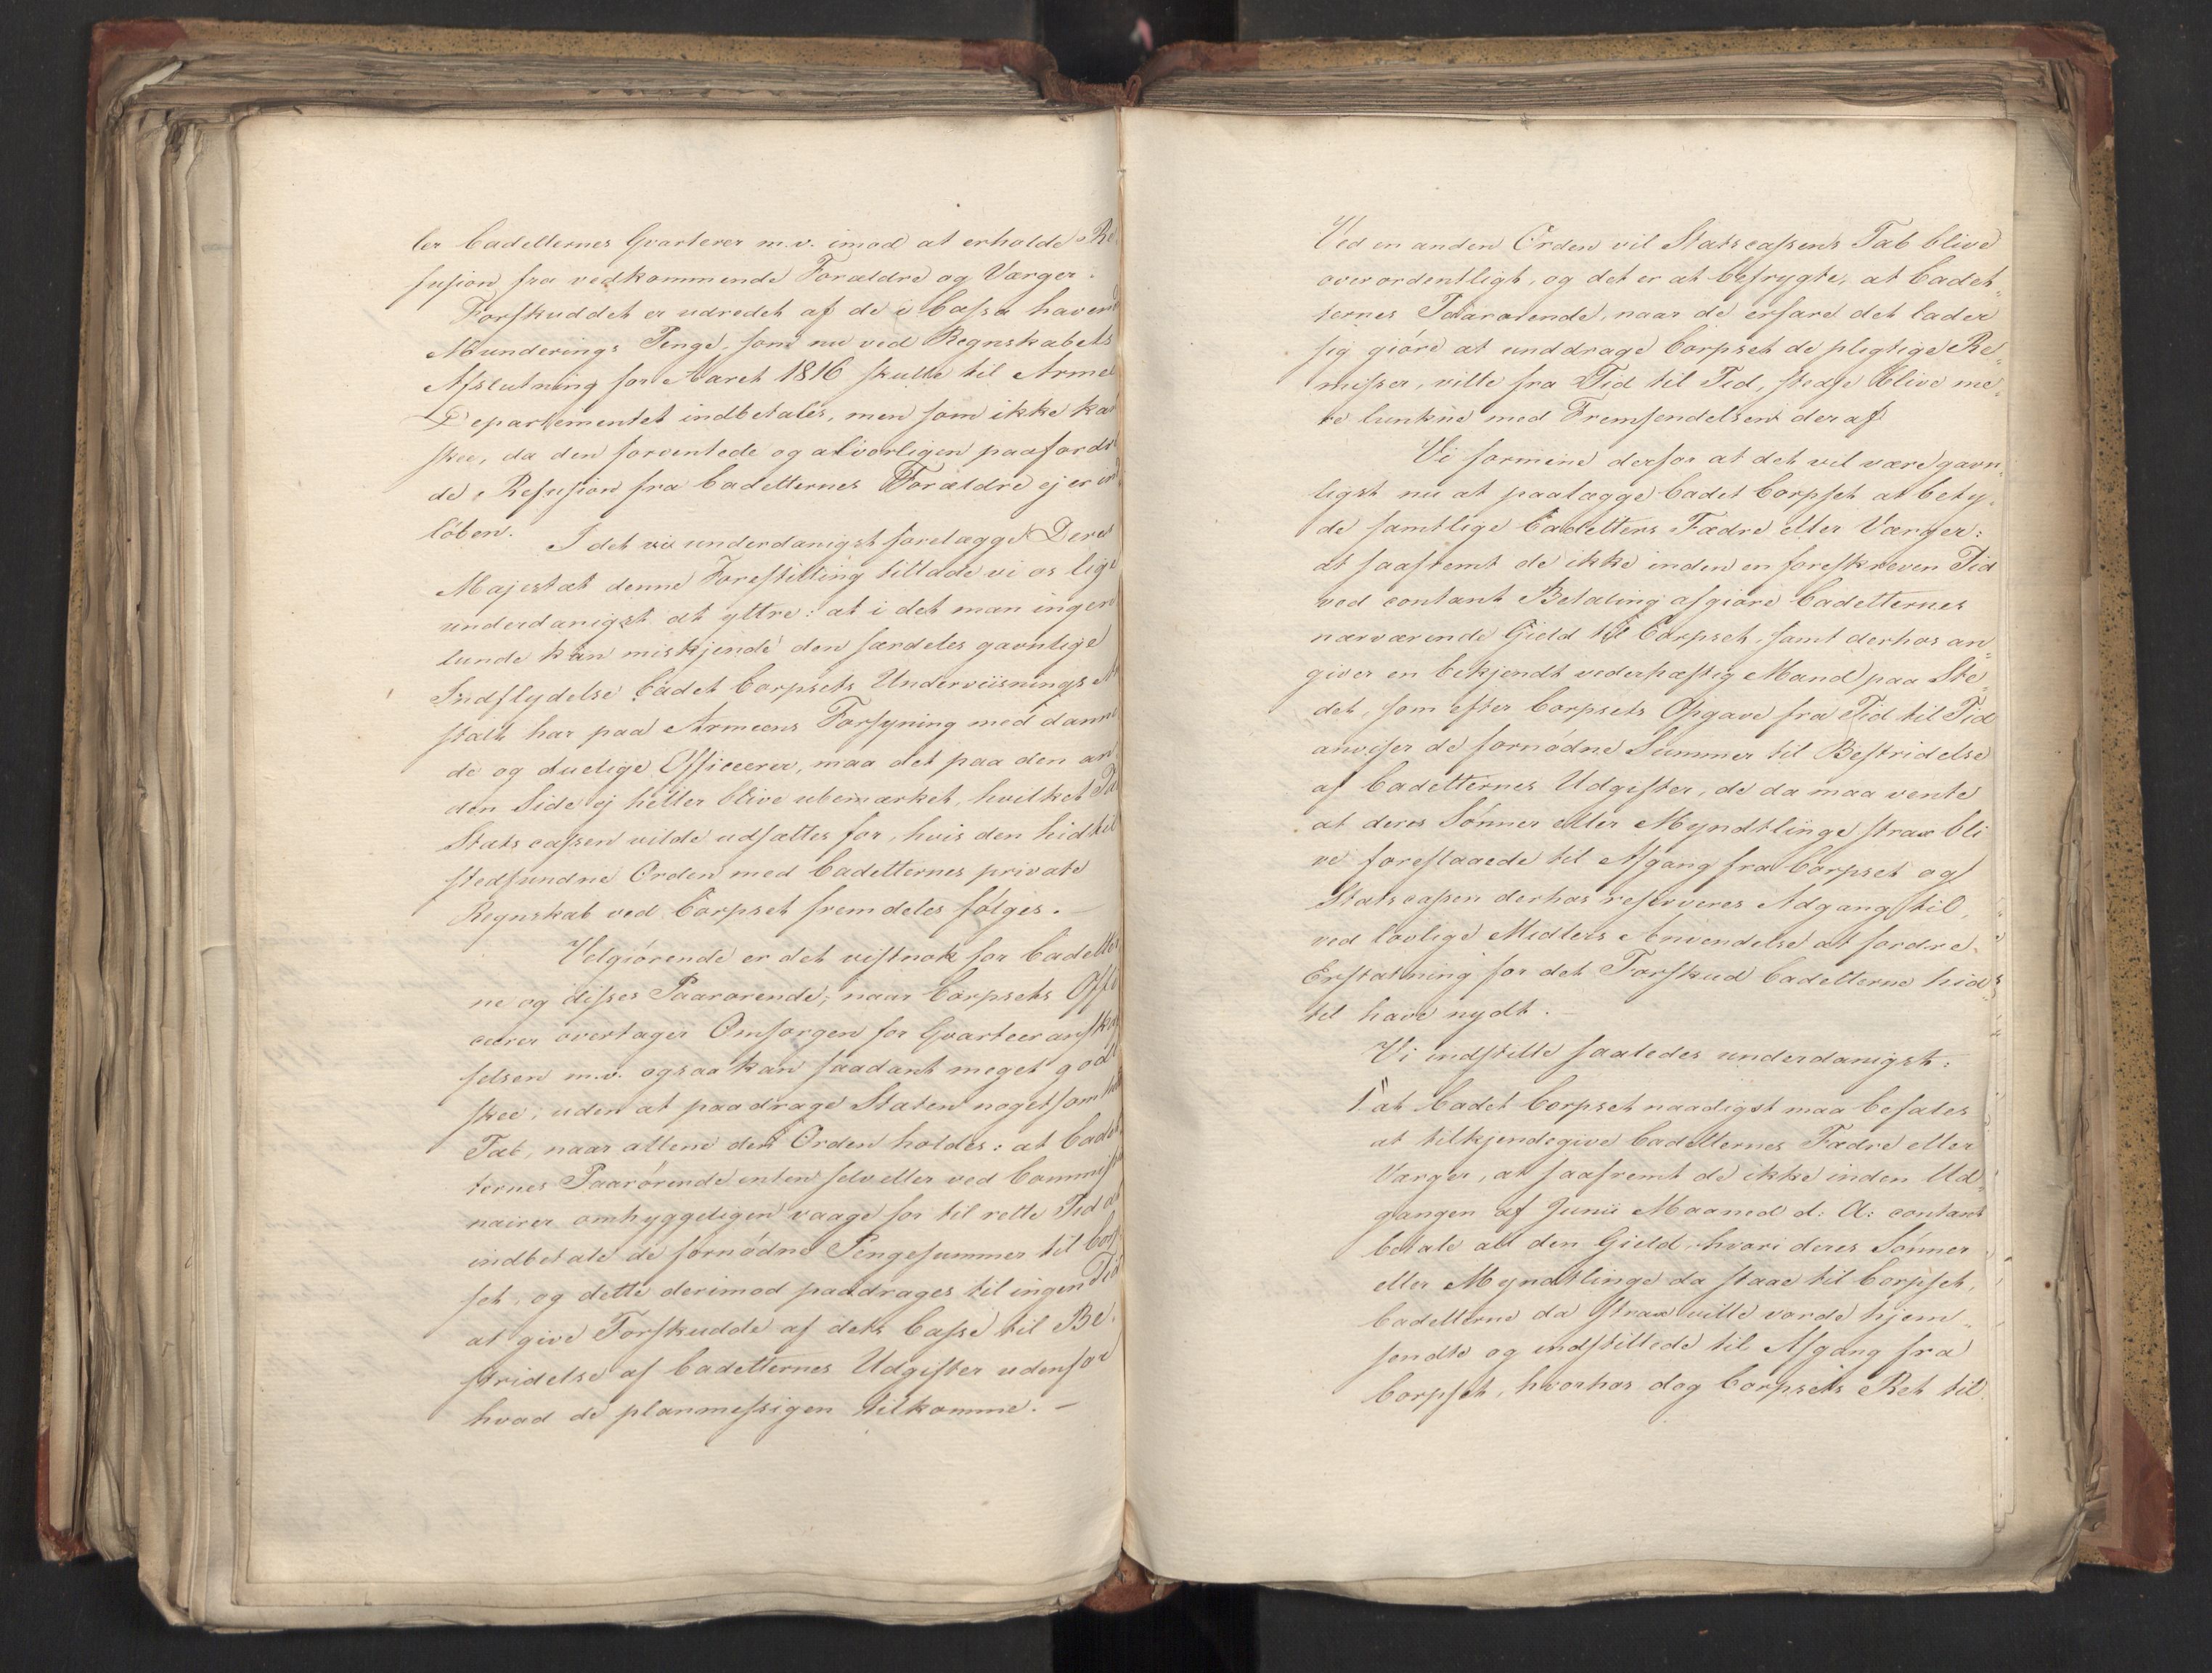 ler Cadetternes Qvarterer m.v. imod at erholde Re-
fusion fra vedkommende Forældre og Værger.
Forskuddet er udredet af de i Cassa havend
Munderings Penge, som nu ved Regnskabets
Afslutning for Aaret 1816 skulle til Arme
Departementet indbetales, men som ikke kan
skee, da den forventede og alvorligen paafordr
de Refusion fra Cadetternes Forældre ej er ind
löben.
I det vi underdanigst forelægge Deres
Majestæt denne Forestilling tillade vi os lige
underdanigst at yttre: at i det man ingen
lunde kan miskjende den særdeles gavnlige
Indflydelse Cadet Corpsets Underviisnings An
stalt har paa Armeens Forsyning med danne
de og duelige Officerer, maa det paa den an
den Side ej heller blive ubemærket, hvilket Ta
Statscassen vilde udsættes for, hvis den hidtil
stedfundne Orden med Cadetternes private
Regnskab ved Corpset fremdeles fölges. —
Velgiörende er det vistnok for Cadetter
ne og disses Paarörende, naar Corpsets Offi
cerer overtager Omsorgen for Qvarteer anskaf
felsen m.v. ogsaa kan saadant meget godt
skee, uden at paadrage Staten noget som helst
Tab, naar allene den Orden holdes: at Cadet
ternes Paarörende enten selv eller ved Commissio
nairer omhyggeligen vaage for til rette Tid at
indbetale de fornödne Pengesummer til Corp
set, og dette derimod paadrages til ingen Tid
at give Forskudde af dets Casse til Be-
stridelse af Cadetternes Udgifter udenfor
hvad de planmessigen tilkomme. —
Ved en anden Orden vil Statscassens Tab blive
overordentligt, og det er at befrygte, at Cadet-
ternes Paarörende, naar de erfare det lader
sig giöre at unddrage Corpset de pligtige Re-
misser, ville fra Tid til Tid, stedse blive me-
re lunkne med Fremsendelsen deraf
Vi formene derfor at det vil være gavn-
ligst nu at paalægge Cadet Corpset at bety-
de samtlige Cadetters Fædre eller Værger:
at saafremt de ikke inden en foreskreven Tid
ved contant Betaling afgiöre Cadetternes
nærværende Gield til Corpset, samt derhos an-
giver en bekjendt vederhæftig Mand paa Ste-
det, som efter Corpsets Opgave fra Tid til Tid
anviser de fornödne Summer til Bestridelse
af Cadetternes Udgifter, de da maa vente
at deres Sönner eller Myndtlinge strax bli
ve foreslaaede til Afgang fra Corpset og
Statscassen derhos reserveres Adgang til,
ved lovlige Midlers Anvendelse at fordre
Erstatning for det Forskud Cadetterne hid
til have nydt. —
Vi indstille saaledes underdanigst:
1" at Cadet Corpset naadigst maa befales
at tilkjendegive Cadetternes Fædre eller
Værger, at saafremt de ikke inden Ud-
gangen af Junii Maaned d: A: contant
betale all den Gield, hvori deres Sönner
eller Myndtlinge da staae til Corpset,
Cadetterne da strax ville vorde hjem-
sendte og indstillede til Afgang fra
Corpset, hvorhos dog Corpsets Ret til